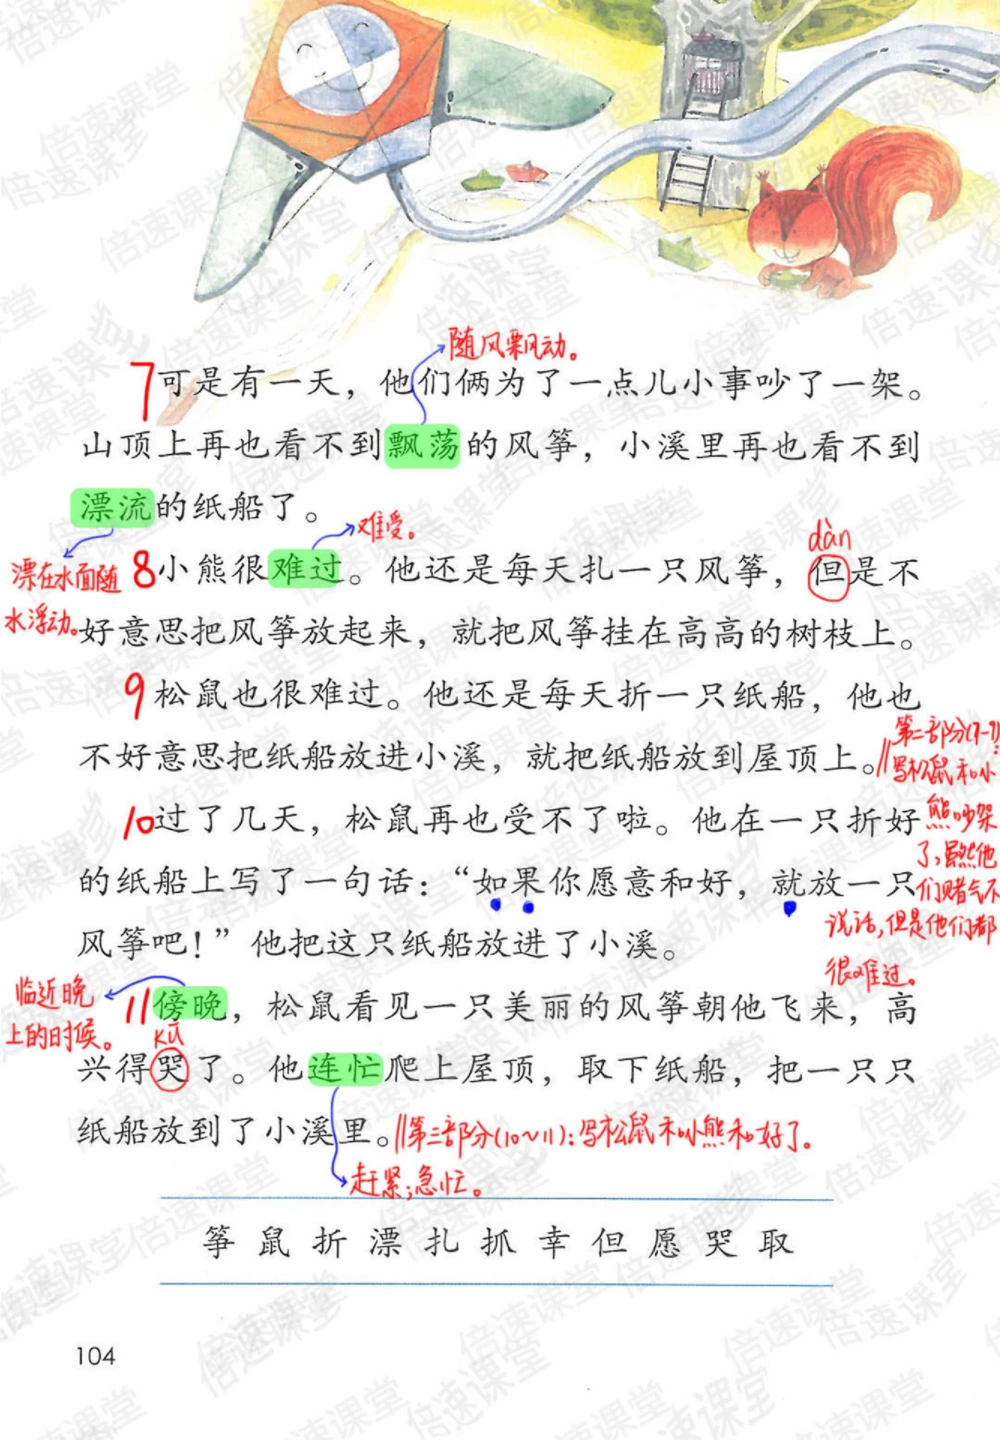 随风飘动。
7可是有一天，他们俩为了一点儿小事吵了一架。
山顶上再也看不到飘荡的风筝，小溪里再也看不到
漂流的纸船了。
难受。
dàn
漂在水面随
水浮动。
8小熊很难过。他还是每天扎一只风筝，但是不
好意思把风筝放起来，就把风筝挂在高高的树枝上。
9松鼠也很难过。他还是每天折一只纸船，他也
不好意思把纸船放进小溪，就把纸船放到屋顶上。
第二部分(7-9):
写松鼠和小
熊吵架
了,虽然他
们赌气不
说话,但是他们都
很难过。
10过了几天，松鼠再也受不了啦。他在一只折好
的纸船上写了一句话：“如果你愿意和好，就放一只
风筝吧！”他把这只纸船放进了小溪。
临近晚
上的时候。
11傍晚，松鼠看见一只美丽的风筝朝他飞来，高
kū
兴得哭了。他连忙爬上屋顶，取下纸船，把一只只
纸船放到了小溪里。
第三部分(10~11):写松鼠和小熊和好了。
赶紧;急忙。
筝 鼠 折 漂 扎 抓 幸 但 愿 哭 取
104
倍速课堂